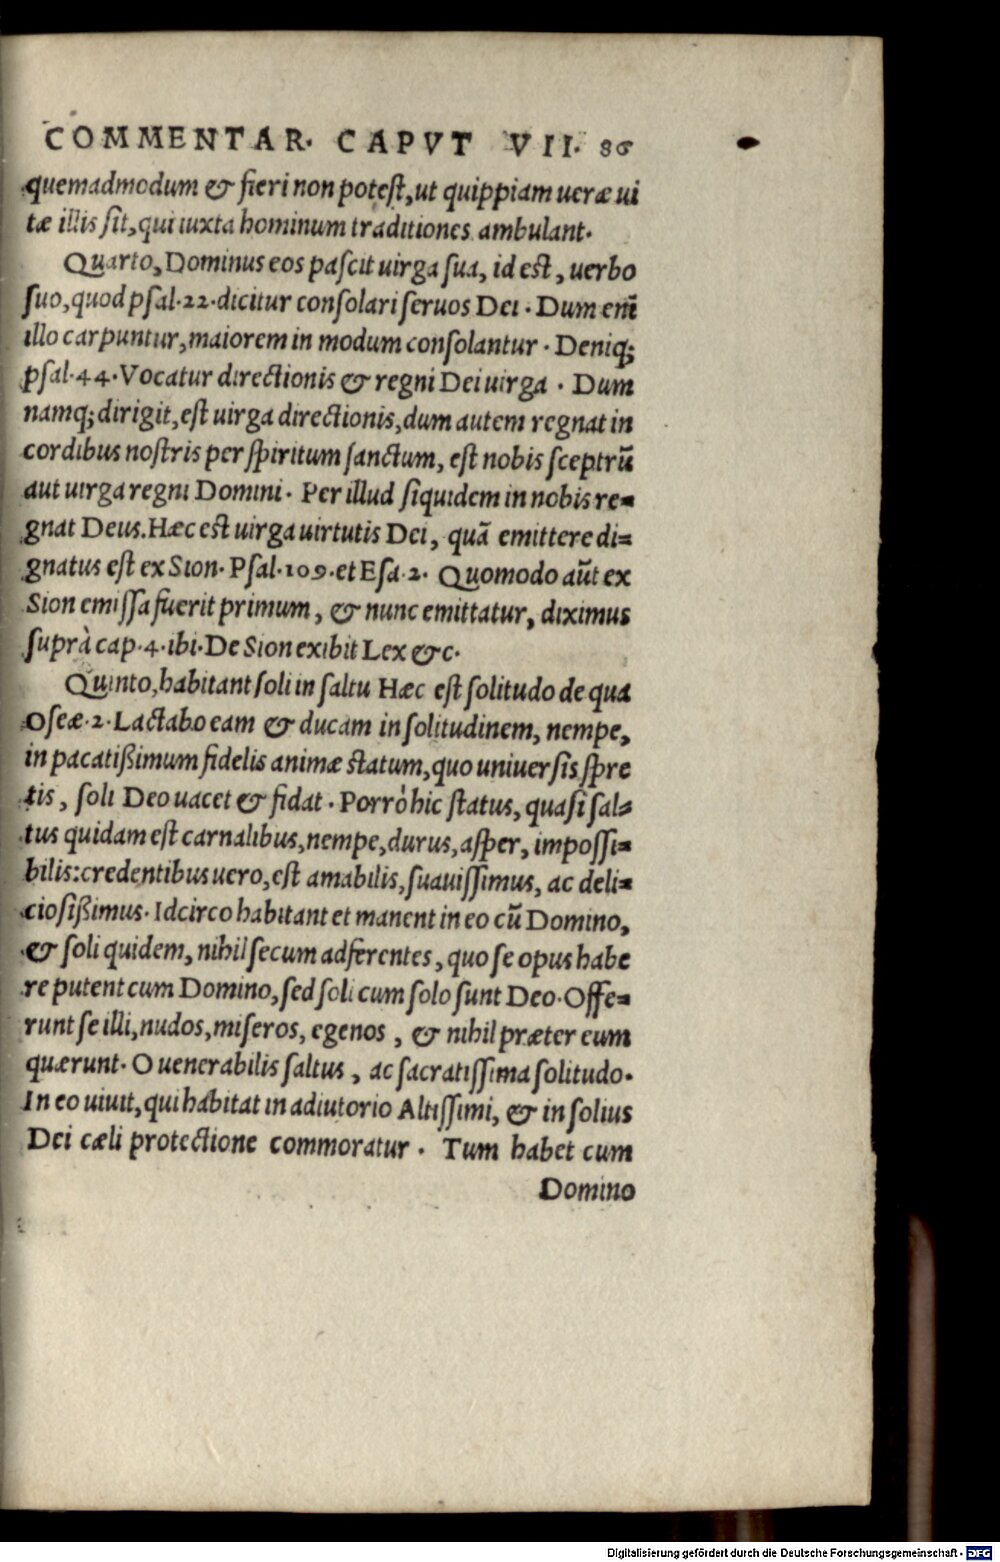 COMMENTAR. CAPVT VII. 86
quemadmodum & fieri non potest, ut quippiam ueræ ui
tæ illis sit, qui iuxta hominum traditiones ambulant.
Quarto, Dominus eos pascit uirga sua, id est, uerbo
suo, quod psal.22. dicitur consolari seruos Dei. Dum em̃
illo carpuntur, maiorem in modum consolantur. Deniq;
psal.44. Vocatur directionis & regni Dei uirga. Dum
namq; dirigit, est uirga directionis, dum autem regnat in
cordibus nostris per spiritum sanctum, est nobis sceptrũ
aut uirga regni Domini. Per illud siquidem in nobis re=
gnat Deus. Hæc est uirga uirtutis Dei, quã emittere di=
gnatus est ex Sion. Psal.109. et Esa.2. Quomodo aũt ex
Sion emissa fuerit primum, & nunc emittatur, diximus
suprà cap.4. ibi. De Sion exibit Lex &c.
Quinto, habitant soli in saltu Hæc est solitudo de qua
Oseæ.2. Lactabo eam & ducam in solitudinem, nempe,
in pacatißimum fidelis animæ statum, quo uniuersis spre
tis, soli Deo uacet & fidat. Porrò hic status, quasi sal=
tus quidam est carnalibus, nempe, durus, asper, impossi=
bilis: credentibus uero, est amabilis, suauissimus, ac deli=
ciosißimus. Idcirco habitant et manent in eo cũ Domino,
& soli quidem, nihil secum adferentes, quo se opus habe
re putent cum Domino, sed soli cum solo sunt Deo. Offe=
runt se illi, nudos, miseros, egenos, & nihil præter eum
quærunt. O uenerabilis saltus, ac sacratissima solitudo.
In eo uiuit, qui habitat in adiutorio Altissimi, & in solius
Dei cæli protectione commoratur. Tum habet cum
Domino
Digitalisierung gefördert durch die Deutsche Forschungsgemeinschaft - DFG